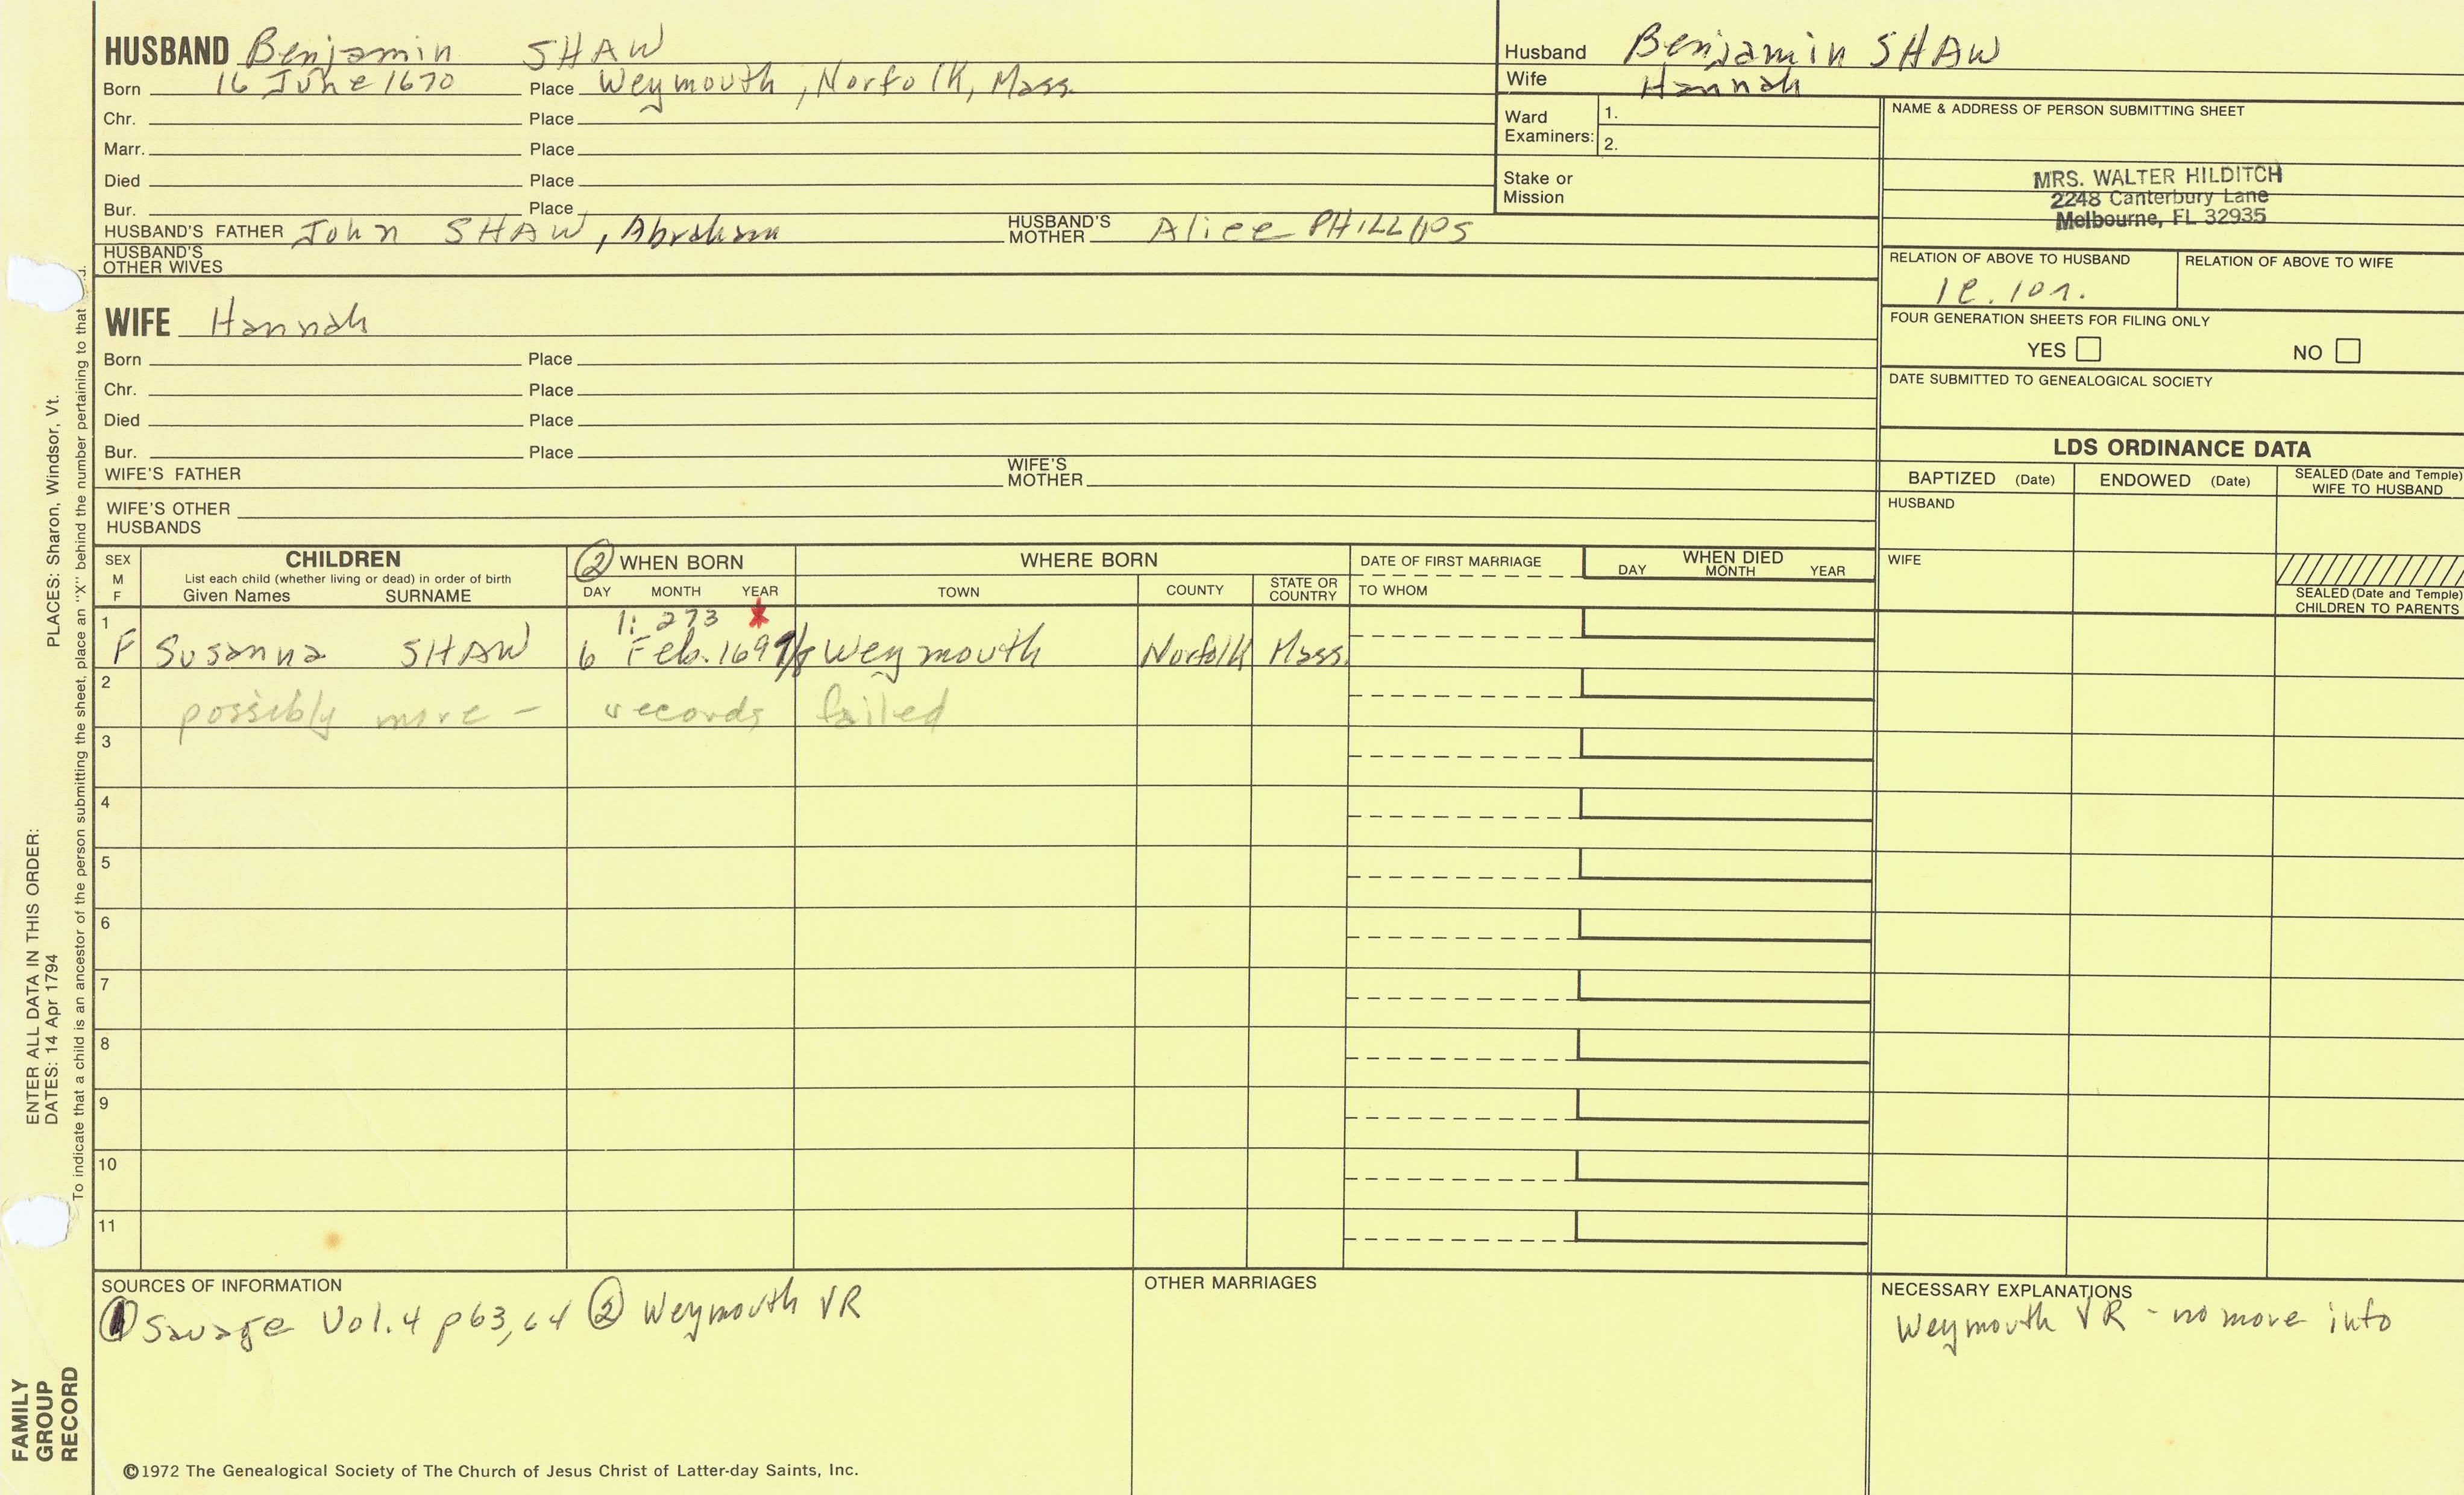 HUSBAND Benjamin SHAW
Born 16 June 1670 Place Weymouth, Norfolk, Mass.
Chr. Place
Marr. Place
Died Place
Bur. Place
HUSBAND'S FATHER John SHAW, Abraham HUSBAND'S MOTHER Alice PHILLIPS
HUSBAND'S OTHER WIVES
WIFE Hannah
Born Place
Chr. Place
Died Place
Bur. Place
WIFE'S FATHER WIFE'S MOTHER
WIFE'S OTHER HUSBANDS
Husband Benjamin SHAW
Wife Hannah
Ward Examiners: 1.
2.
Stake or Mission
NAME & ADDRESS OF PERSON SUBMITTING SHEET
MRS. WALTER HILDITCH
2248 Canterbury Lane
Melbourne, FL 32935
RELATION OF ABOVE TO HUSBAND RELATION OF ABOVE TO WIFE
FOUR GENERATION SHEETS FOR FILING ONLY
YES NO
DATE SUBMITTED TO GENEALOGICAL SOCIETY
LDS ORDINANCE DATA
BAPTIZED (Date) ENDOWED (Date) SEALED (Date and Temple) WIFE TO HUSBAND
HUSBAND
WIFE
SEALED (Date and Temple) CHILDREN TO PARENTS
SEX M F
CHILDREN
List each child (whether living or dead) in order of birth
Given Names SURNAME
② WHEN BORN
DAY MONTH YEAR
WHERE BORN
TOWN COUNTY STATE OR COUNTRY
DATE OF FIRST MARRIAGE
TO WHOM
WHEN DIED
DAY MONTH YEAR
1 1: 273 *
F Susanna SHAW 6 Feb. 1697/8 Weymouth Norfolk Mass.
2 possibly more - records failed
3
4
5
6
7
8
9
10
11
SOURCES OF INFORMATION
① Savage Vol. 4 p63, 64 ② Weymouth VR
OTHER MARRIAGES
NECESSARY EXPLANATIONS
Weymouth VR - no more info
©1972 The Genealogical Society of The Church of Jesus Christ of Latter-day Saints, Inc.
FAMILY GROUP RECORD
ENTER ALL DATA IN THIS ORDER:
DATES: 14 Apr 1794 PLACES: Sharon, Windsor, Vt.
To indicate that a child is an ancestor of the person submitting the sheet, place an "X" behind the number pertaining to that